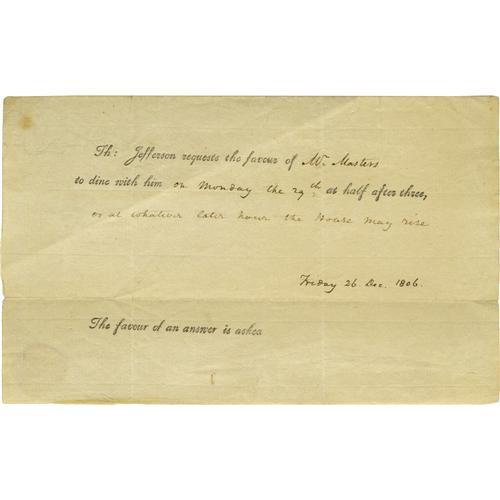 Th: Jefferson requests the favour of Mr. Masters
to dine with him on Monday the 29th. at half after three,
or at whatever later hour the House may rise
Friday 26. Dec. 1806.
The favour of an answer is asked